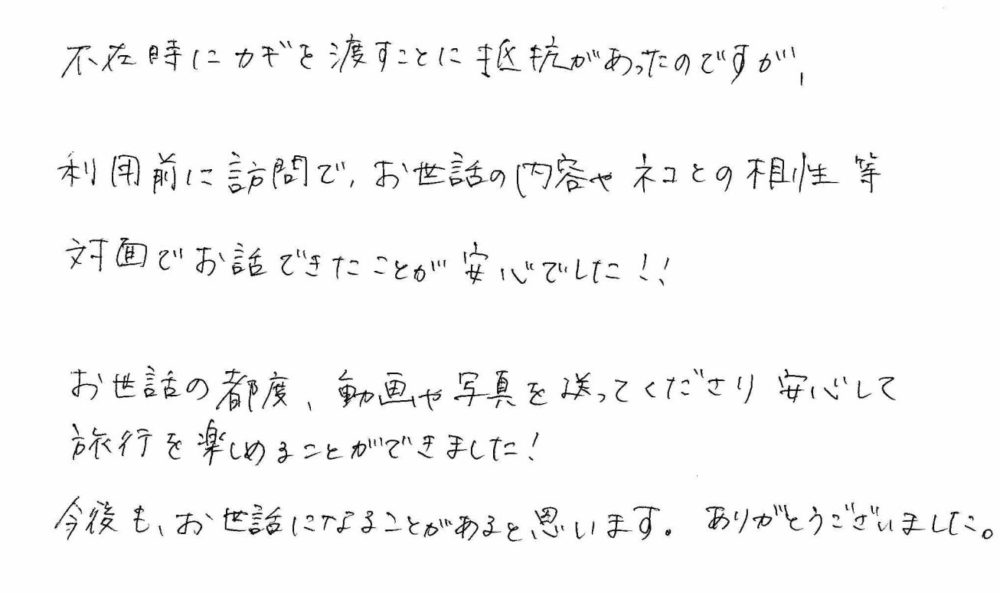 不在時にカギを渡すことに抵抗があったのですが、
利用前に訪問で、お世話の内容や ネコとの相性 等
対面でお話できたことが 安心でした!!
お世話の都度、動画や写真を送ってくださり 安心して
旅行を楽しめることができました!
今後も、お世話になることがあると思います。 ありがとうございました。